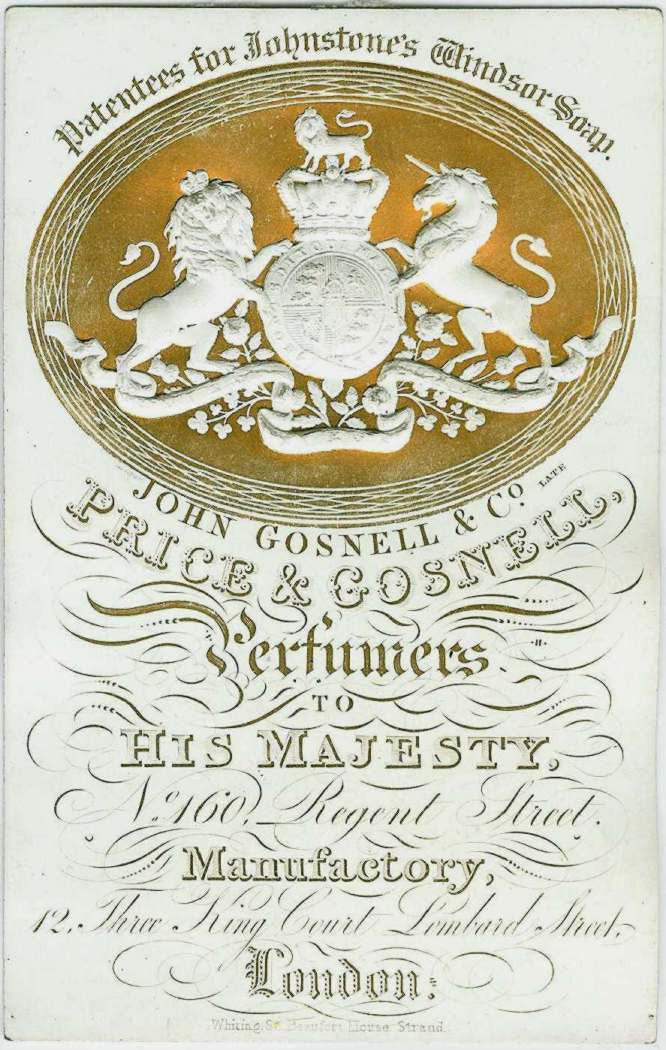 Patentees for Johnstone's Windsor Soap.
JOHN GOSNELL & Co. LATE
PRICE & GOSNELL,
Perfumers
TO
HIS MAJESTY,
No. 160, Regent Street.
Manufactory,
12. Three King Court Lombard Street,
London:
Whiting, Sc. Beaufort House Strand.